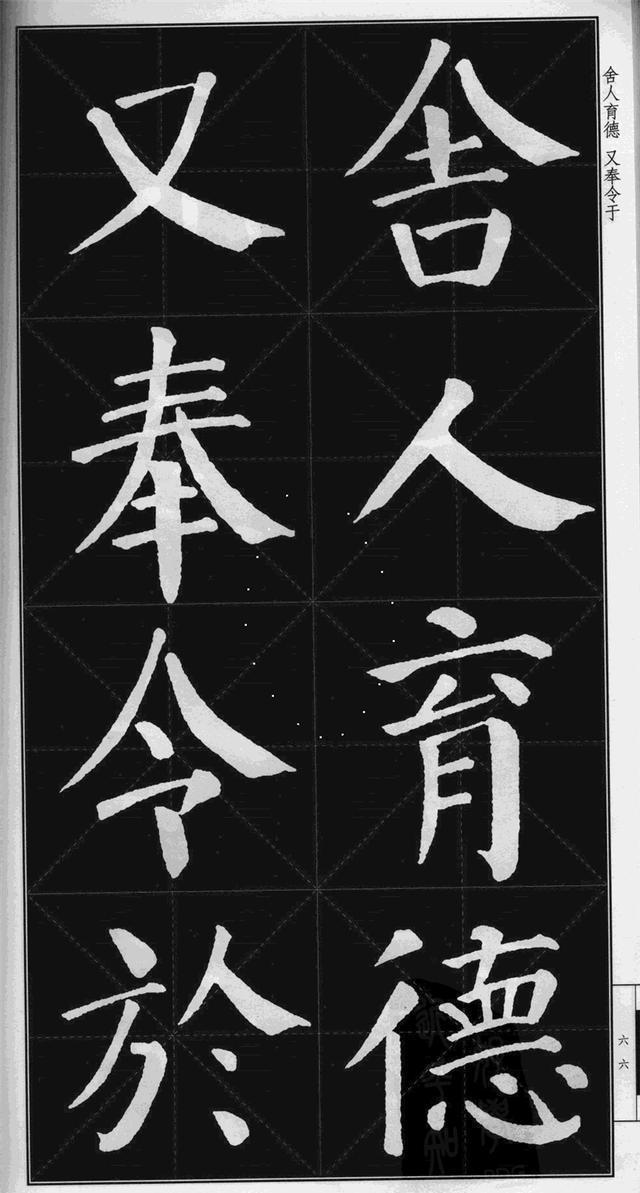 舍人育德
又奉令於
舍人育德 又奉令于
六六